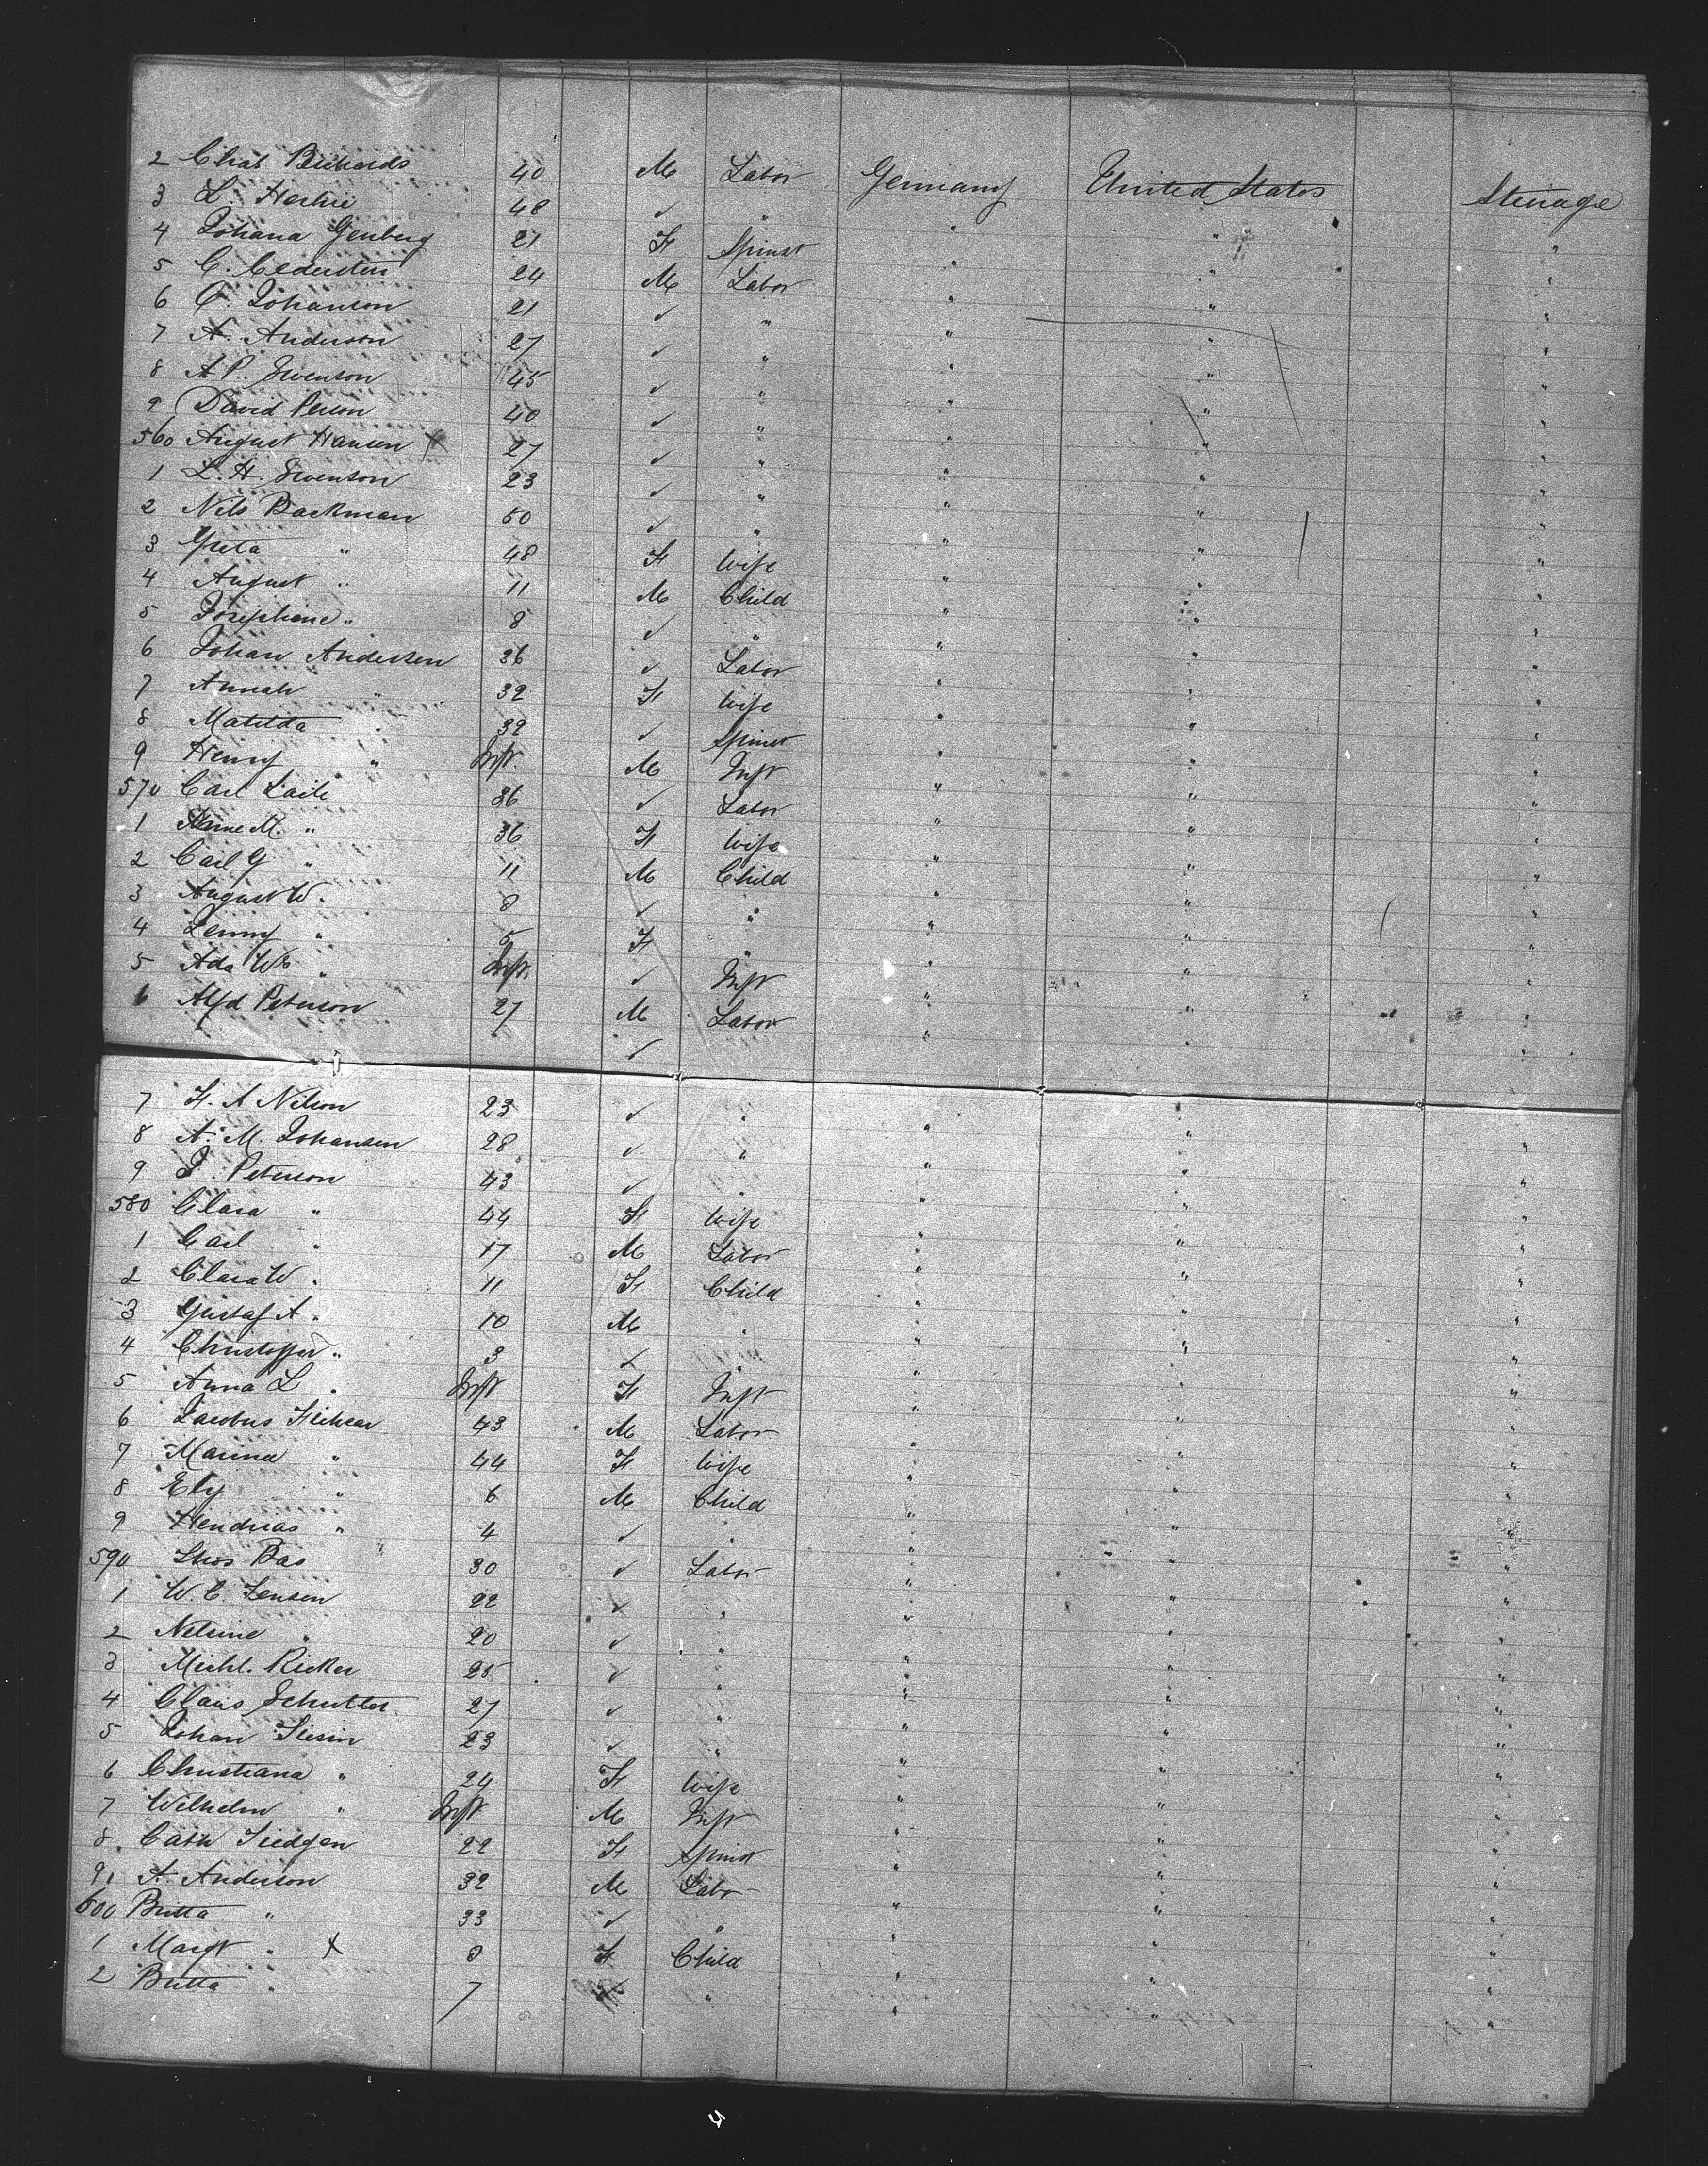 2 Chas Richards 40 M Labor Germany United States Steerage
3 L. 48 ✓ " " " "
4 Johana Genberg 21 F Spinst " " "
5 C. Cedersten 24 M Labor " " "
6 C. Johanson 21 ✓ " " " "
7 A. Anderson 27 ✓ " " " "
8 A P. Swenson 45 ✓ " " " "
9 David Person 40 ✓ " " " "
560 August Hansen X 27 ✓ " " " "
1 L. H. Swenson 23 ✓ " " " "
2 Nils Backman 50 ✓ " " " "
3 Greta " 48 F Wife " " "
4 August " 11 M Child " " "
5 Josephine " 8 ✓ " " " "
6 Johan Andersen 36 ✓ Labor " " "
7 Annah " 32 F Wife " " "
8 Matilda " 32 ✓ Spinst " " "
9 Henry " Inft M Inft " " "
570 Carl 36 ✓ Labor " " "
1 Anne M. " 36 F Wife " " "
2 Carl G " 11 M Child " " "
3 August W. " 8 ✓ " " " "
4 Jenny " 5 F " " " "
5 Ada W " Inft ✓ Inft " " "
6 Alfd Peterson 27 M Labor " " "
7 F. A Nilson 23 ✓ " " " "
8 A. M. Johansen 28 ✓ " " " "
9 P. Peterson 43 ✓ " " " "
580 Clara " 44 F Wife " " "
1 Carl " 17 M Labor " " "
2 Clara W " 11 F Child " " "
3 Gustaf A. " 10 M " " " "
4 Christoffer " 3 ✓ " " " "
5 Anna L " Inft F Inft " " "
6 Jacobus 43 M Labor " " "
7 Marina " 44 F Wife " " "
8 Ely " 6 M Child " " "
9 Hendrias " 4 ✓ " " " "
590 Bas 30 ✓ Labor " " "
1 W. C. Jensen 22 ✓ " " " "
2 Nelsine " 20 ✓ " " " "
3 Michl. Ricker 25 ✓ " " " "
4 Claus Schutter 27 ✓ " " " "
5 Johan 23 ✓ " " " "
6 Christiana " 24 F Wife " " "
7 Wilhelm " Inft M Inft " " "
8 Cath Tiedgen 22 F Spinst " " "
9 A. Anderson 32 M Labor " " "
600 Britta " 33 ✓ " " " "
1 Margt " X 8 F Child " " "
2 Britta " 7 ✓ " " " "